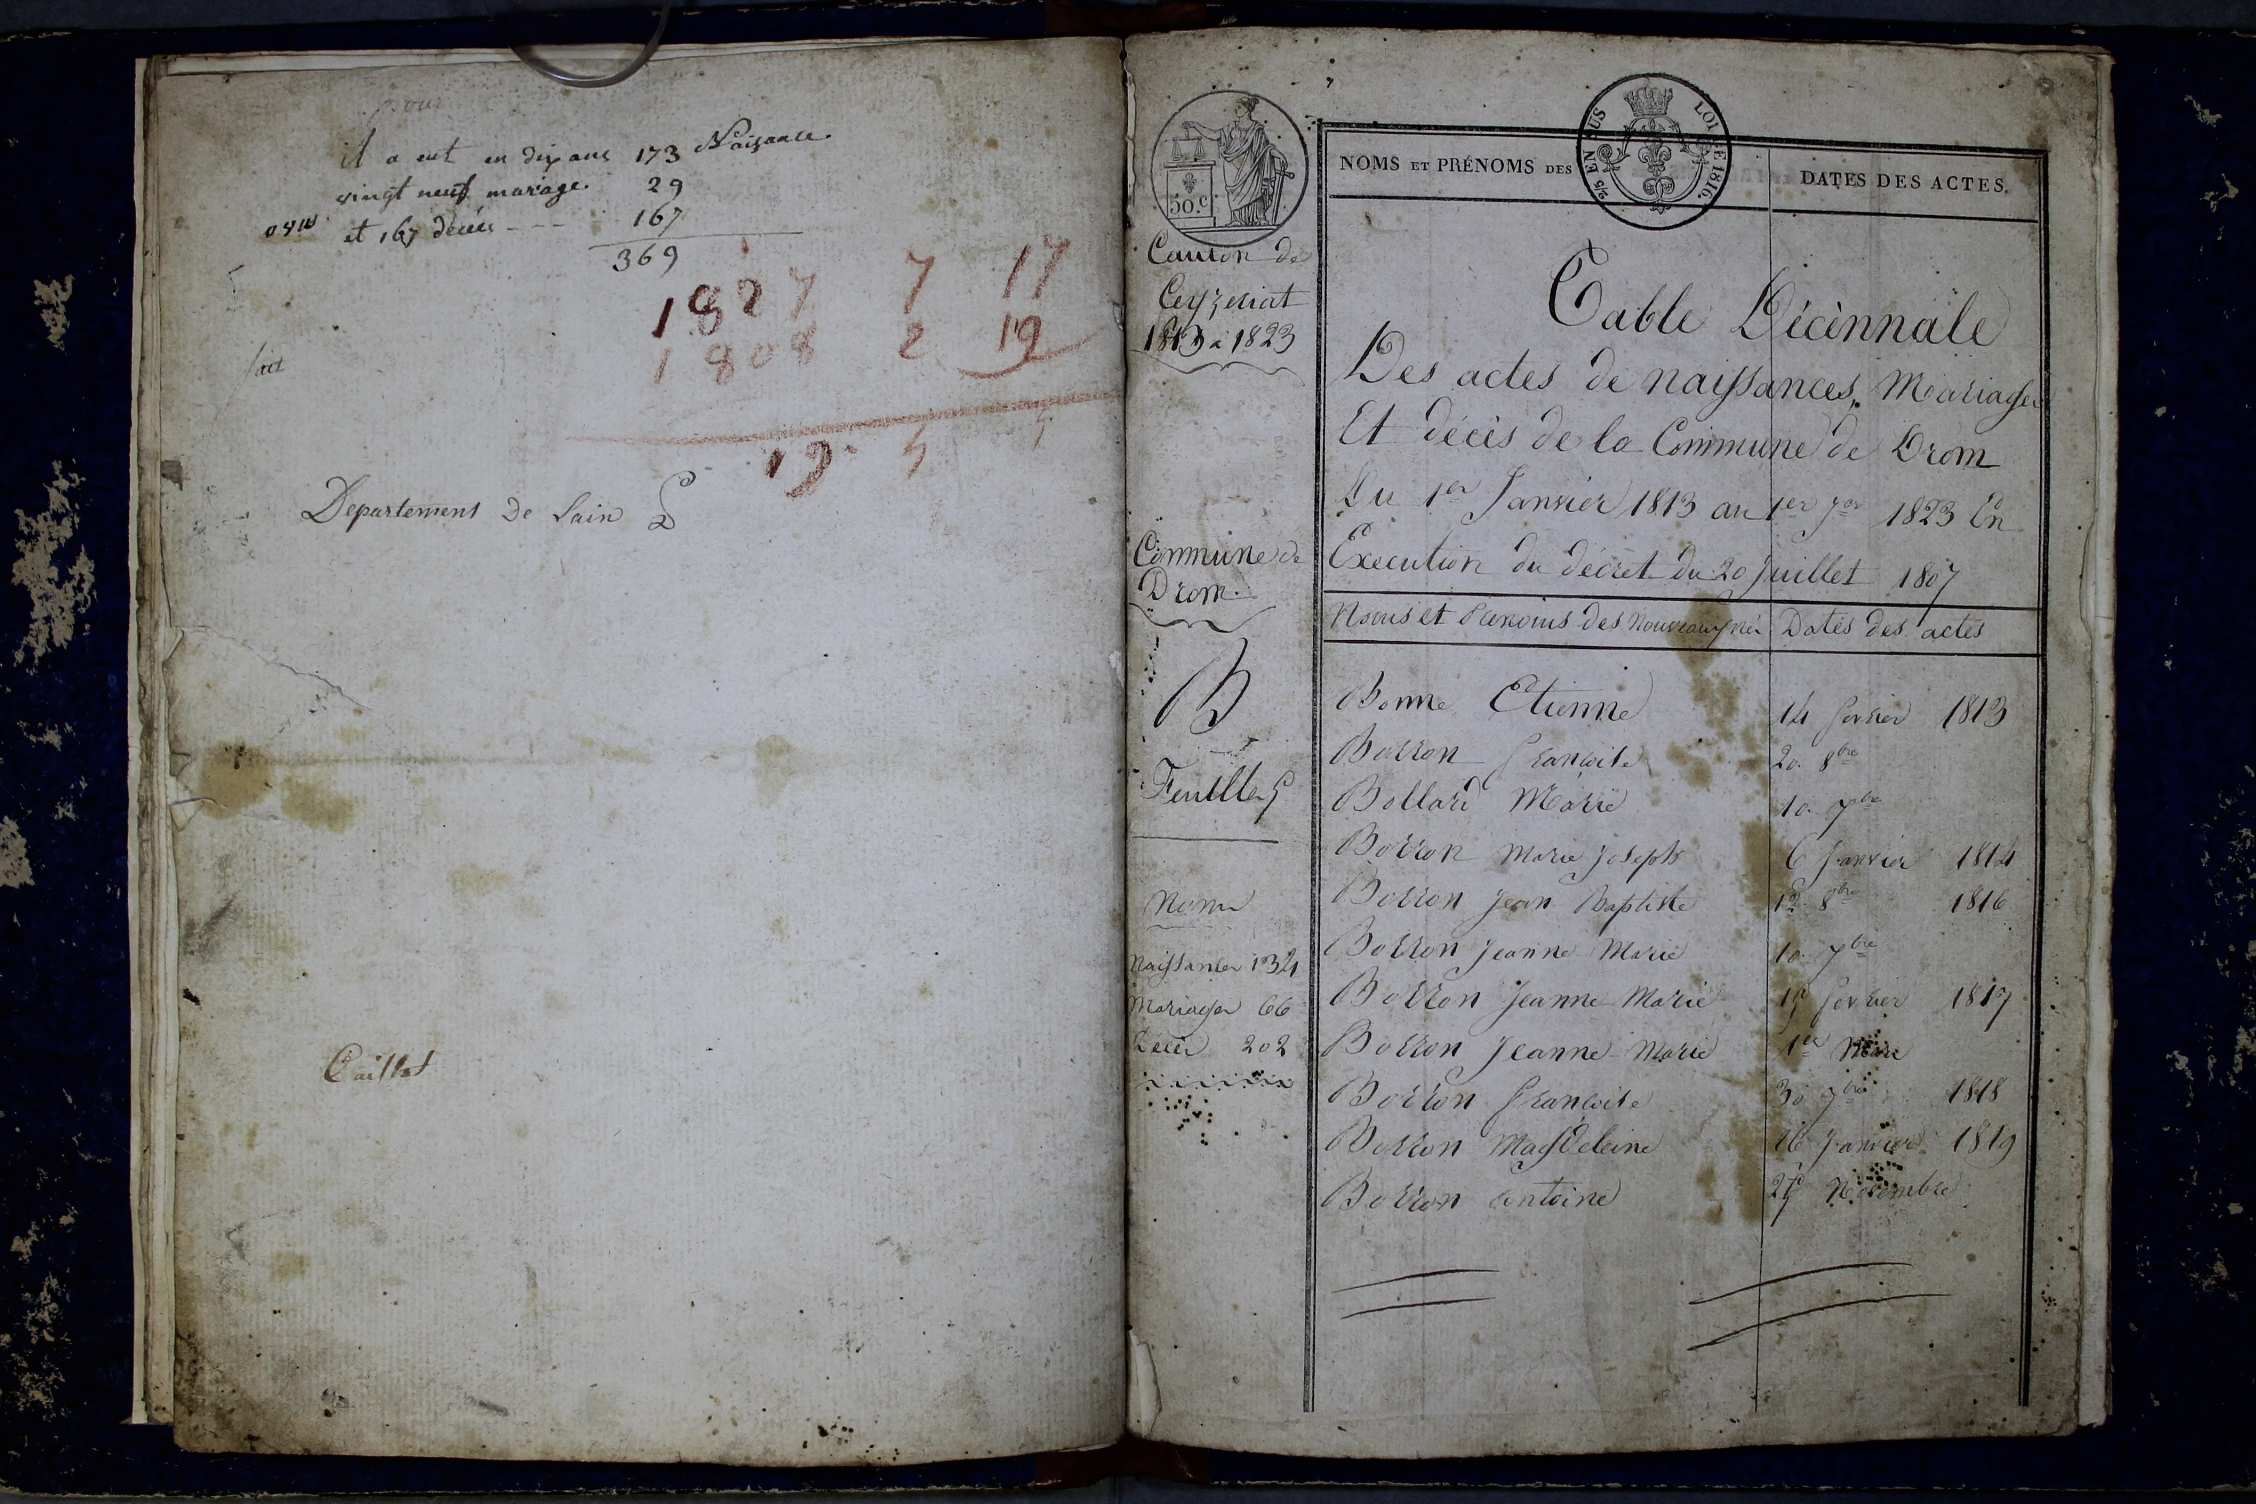 pour
il a eut en dix ans 173 Naisance
vingt neuf mariage. 29
et 167 décés --- 167
369
1827 7 17
1808 2 12
19 5 5
fait
Departement De Lain
Caillat
50.c
2/5 EN SUS LOI DE 1816.
NOMS ET PRÉNOMS DES
DATES DES ACTES.
Canton de
Ceyzeriat
1813 a 1823
Table Décènnale
Des actes de naissances, Mariages
Et décès de la Commune de Drom
Du 1er Janvier 1813 au 1er jer 1823 En
Execution du décret du 20 Juillet 1807
Commune de
Drom.
Noms et Prenoms des Nouveaux nés Dates des actes
B
Feuille
Noms
Naissances 134
Mariages 66
Décès 202
Bonne Etienne 14 fevrier 1813
Borron francoise 20. 8bre
Bollard Marie 10. 7bre
Borron Marie joseph 6 Janvier 1814
Borron jean Baptiste 12 8bre 1816
Borron jeanne Marie 10 7bre
Borron jeanne Marie 19 fevrier 1817
Borron jeanne Marie 1er Mars
Borron francoise 30 7bre 1818
Borron Magdeleine 26 Janvier 1819
Borron antoine 27 Novembre